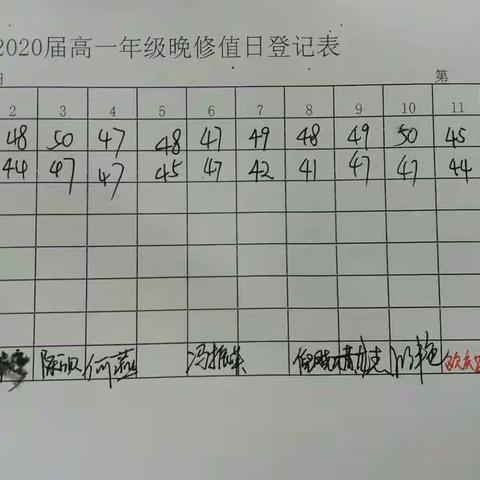 2020届高一年级晚修值日登记表
日 第
2 3 4 5 6 7 8 9 10 11
48 50 47 48 47 49 48 49 50 45
44 47 47 45 47 42 41 47 47 44
何燕 冯振荣